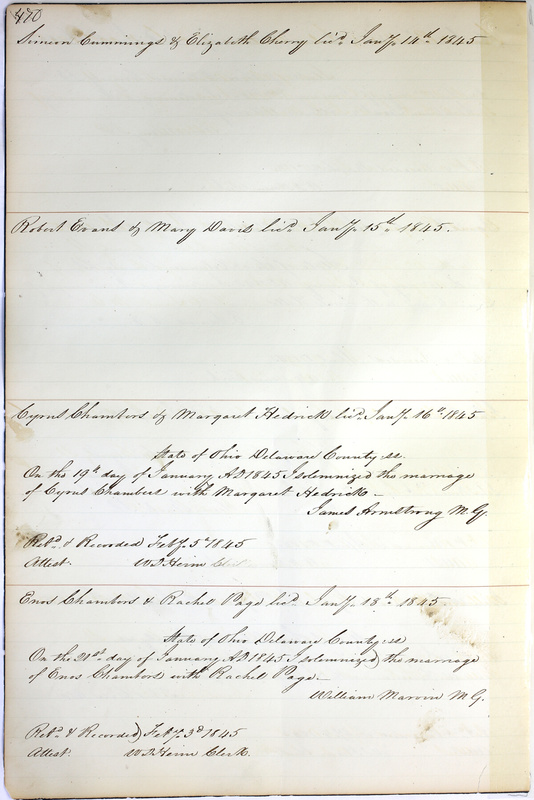 470
Simeon Cummings & Elizabeth Cherry lic'd Jan'y. 14th 1845
Robert Evans & Mary Davis lic'd Jan'y. 15th 1845.
Cyrus Chambers & Margaret Hedrick lic'd Jan'y. 16th 1845
State of Ohio Delaware County: ss.
On the 19th day of January AD 1845 I solemnized the marriage
of Cyrus Chambers with Margaret Hedrick –
James Armstrong M. G.
Ret'd & Recorded Feb'y. 5th 1845
Attest: Clerk
Enos Chambers & Rachel Page lic'd Jan'y. 18th 1845
State of Ohio Delaware County: ss
On the 21st day of January AD 1845 I solemnized the marriage
of Enos Chambers with Rachel Page –
William Marvin M. G.
Ret'd & Recorded Feb'y. 3d 1845
Attest: Clerk.